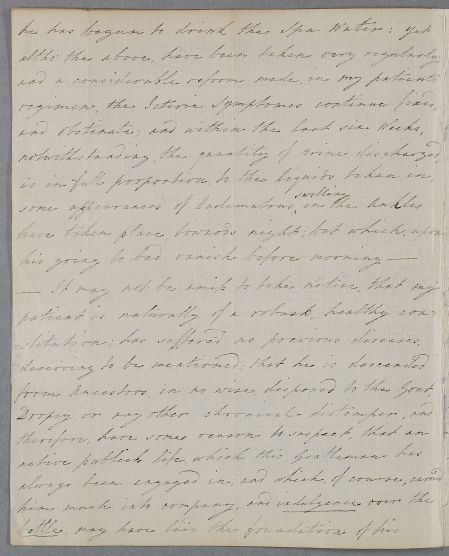 he has begun to drink the Spa Water; yet
altho' the above, have been taken very regularly,
and a considerable reform made, in my patient's
regimen, the Icteric Symptomes continue fixed,
and obstinate; and within the last six Weeks,
notwithstanding, the quantity of urine discharged,
is in full proportion, to the liquids taken in,
some appearances of oedematous swelling in the Ankles
have taken place, towards night; but which, upon
his going to bed, vanish before morning —
— It may not be amiss to take notice, that my
patient is naturally of a robust, healthy con-
-stitution; has suffered no previous diseases,
deserving to be mentioned; that he is descended
from Ancestors, in no wise disposed to the Gout
Dropsy, or any other chronical distemper, and
therefore, have some reason to suspect, that an
active publick life, which this Gentleman has
always been engaged in; and which, of course,
him much into company, and indulgence over the
bottle, may have laid the foundation of his